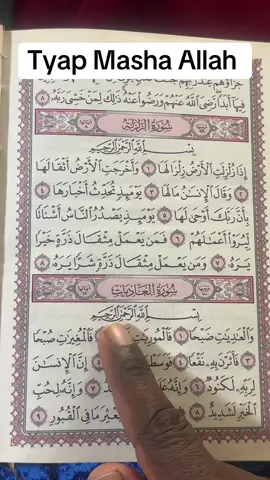 Tyap Masha Allah
جَزَاؤُهُمْ عِندَ رَبِّهِمْ جَنَّٰتُ
فِيهَآ أَبَدًا رَّضِىَ ٱللَّهُ عَنْهُمْ وَرَضُوا۟ عَنْهُ ذَٰلِكَ لِمَنْ خَشِىَ رَبَّهُۥ ٨
سُورَةُ الزَّلْزَلَةِ
بِسْمِ ٱللَّهِ ٱلرَّحْمَٰنِ ٱلرَّحِيمِ
إِذَا زُلْزِلَتِ ٱلْأَرْضُ زِلْزَالَهَا ١ وَأَخْرَجَتِ ٱلْأَرْضُ أَثْقَالَهَا
٢ وَقَالَ ٱلْإِنسَٰنُ مَا لَهَا ٣ يَوْمَئِذٍ تُحَدِّثُ أَخْبَارَهَا ٤
بِأَنَّ رَبَّكَ أَوْحَىٰ لَهَا ٥ يَوْمَئِذٍ يَصْدُرُ ٱلنَّاسُ أَشْتَاتًا
لِّيُرَوْا۟ أَعْمَٰلَهُمْ ٦ فَمَن يَعْمَلْ مِثْقَالَ ذَرَّةٍ خَيْرًا
يَرَهُۥ ٧ وَمَن يَعْمَلْ مِثْقَالَ ذَرَّةٍ شَرًّا يَرَهُۥ ٨
سُورَةُ العَادِيَاتِ
بِسْمِ ٱللَّهِ ٱلرَّحْمَٰنِ ٱلرَّحِيمِ
وَٱلْعَٰدِيَٰتِ ضَبْحًا ١ فَٱلْمُورِيَٰتِ فَٱلْمُغِيرَٰتِ صُبْحًا
٣ فَأَثَرْنَ بِهِۦ نَقْعًا ٤ فَوَسَطْنَ إِنَّ ٱلْإِنسَٰنَ
لِرَبِّهِۦ لَكَنُودٌ ٦ وَإِنَّهُۥ عَلَىٰ ٧ وَإِنَّهُۥ لِحُبِّ
ٱلْخَيْرِ لَشَدِيدٌ ٨ بُعْثِرَ مَا فِى ٱلْقُبُورِ ٩